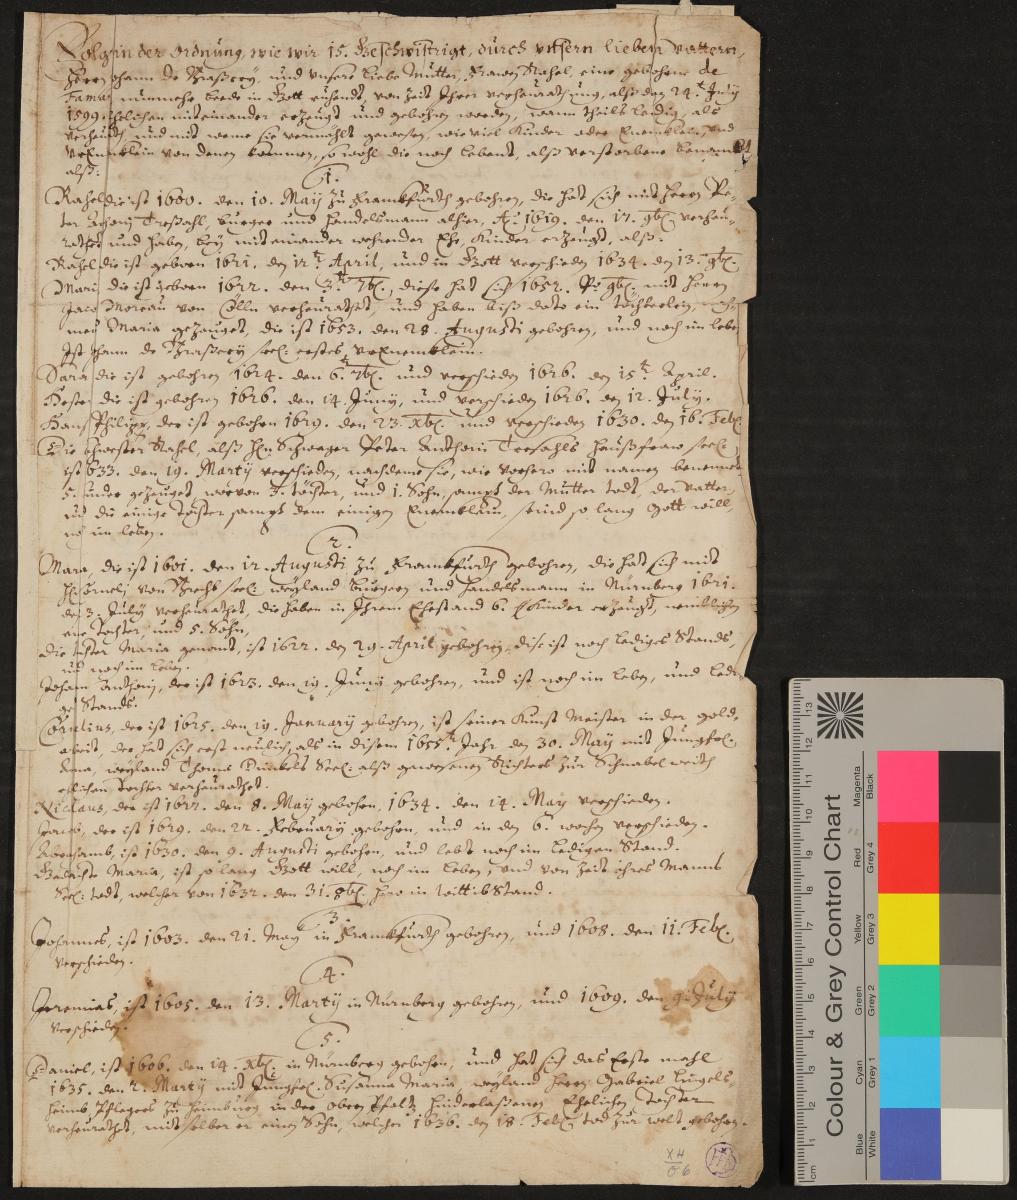 Folgen der Ordnung, wie wir 15. Geschwistrigt, durch unsern lieben Vattern,
Herrn Johann de Braßery, und unsere liebe Mutter, Frawen Rahel, eine gebohrne de
Famas nunmehr beede in Gott ruhendt, von Zeit Ihrer verheurathung, alß den 24.t July
1599. Ehelichen mit einander erzeugt und gebohrn worden, wann theils ledig, als
verheurath, und mit weme sie vermählt gewesen, wie viel Kinder oder Enencklein, und
UrEnencklein von denen kommen, so wohl die noch lebent, alß verstorbene benamt
alß:
1.
Rahel die ist 1600. den 10. May zu Franckfurth gebohren, die hat sich mit Herrn Pe-
ter Anthonj Treßahl, burger und handelsmann alhier, Ao. 1619. den 17. 9br. verheu-
rathet und haben, bey mit einander wehrender Ehe, Kinder erzeugt, alß:
Rahel die ist geborn 1621. den 12.t April, und in Gott verschieden 1634. den 13. 9br.
Maria die ist geborn 1622. den 3.t 7br. diese hat sich 1652. 9br. mit Herrn
Jaco Moreau von Cölln verheurathet, und haben biß dato ein töchterlein, nah-
mens Maria gezeuget, die ist 1653. den 28. Augusti gebohren, und noch im leben
Ist Johann de Braßery seel: erstes UrEnencklein.
Sara die ist gebohren 1624. den 6. 7br. und verschieden 1626. den 15.t April.
Hester die ist gebohren 1626. den 14. Juny, und verschieden 1626. den 12. July.
Hans Philipp, der ist gebohren 1629. den 23. Xbr. und verschieden 1630. den 16. Feb.
Die Schwester Rahel, alß Hn. Schwager Peter Anthoni Tresahls haußfraw seel:
ist 1633. den 19. Marty verschieden, nachdeme sie, wie vorhero mit namen benennet
5. Kinder gezeuget, worvon 3. töchter, und 1. Sohn, sampt der Mutter todt, der Vatter,
und die einige tochter sampt dem einigen Enencklein, seind so lang Gott will,
noch im leben.
2.
Maria, die ist 1601. den 12. Augusti zu Franckfurth gebohren, die hat sich mit
Hn. Cornelj von Brecht seel: weyland burgern und handelsmann in Nürnberg 1621.
den 3. July verheurathet, die haben in Ihrem Ehestand 6. Kinder erzeugt, nemblichen
eine Tochter, und 5. Söhn,
Die tochter Maria genant, ist 1622. den 29. April gebohren, dise ist noch lediges Stands,
und noch im leben.
Johann Anthonj, der ist 1623. den 19. Juny gebohren, und ist noch im leben, und ledi-
ges Stands.
Cornelius, der ist 1625. den 19. January gebohren, ist seiner Kunst Meister in der gold-
arbeit, der hat sich erst neulich, als in disem 1655.t Jahr den 30. May mit Jungfr.
Anna, weyland Thoma Dünckels Seel: alß gewesenen Richters zur Schnabel weith
ehlichen Tochter verheurathet.
Niclaus, der ist 1627. den 8. May gebohren, 1634. den 14. May verschieden.
Jacob, der ist 1629. den 22. February gebohren, und in den 6. wochen verschieden.
Abraham, ist 1630. den 9. Augusti gebohren, und lebt noch im ledigen Stand.
Gedachte Maria, ist so lang Gott will, noch im leben, und von Zeit ihres Manns
Seel: todt, welcher von 1632. den 31. 8br. hero in wittibstand.
3.
Johannes, ist 1603. den 21. May in Franckfurth gebohren, und 1608. den 11. Feb.
verschieden.
4.
Jeremias, ist 1605. den 13. Marty in Nürnberg gebohren, und 1609. den 9. July
verschieden.
5.
Daniel, ist 1606. den 14. Xbr. in Nürnberg gebohren, und hat sich das Erste mahl
1635. den 2. Marty mit Jungfr. Susanna Maria, weyland Herrn Gabriel Lingels-
heimb Pflegers zu Haimburg in der obern Pfaltz hinderlaßenen Ehelichen tochter
verheurathet, mit selber er einen Sohn, welcher 1636. den 18. Feb. tod zur welt gebohren.
XH
06
Colour & Grey Control Chart
Blue Cyan Green Yellow Red Magenta
White Grey 1 Grey 2 Grey 3 Grey 4 Black
cm 1 2 3 4 5 6 7 8 9 10 11 12 13